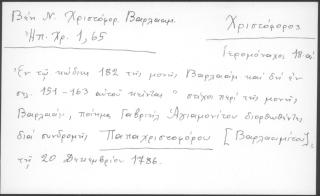 Βέη Ν. Χριστόφορ. Βαρλαάμ.
Ἠπ. Χρ. 1, 65
Χριστόφορος
Ἱερομόναχος 18 αἰ
Ἐν τῷ κώδικι 182 τῆς μονῆς Βαρλαάμ καὶ δὴ ἐν
σελ. 151-163 αὐτοῦ κεῖνται οἱ στίχοι περὶ τῆς μονῆς
Βαρλαάμ, ποίημα Γαβριὴλ Ἁγιαμονίτου διορθωθέντες
διὰ συνδρομῆς Παπαχριστοφόρου [Βαρλααμίτου],
τῇ 20 Δεκεμβρίου 1786.